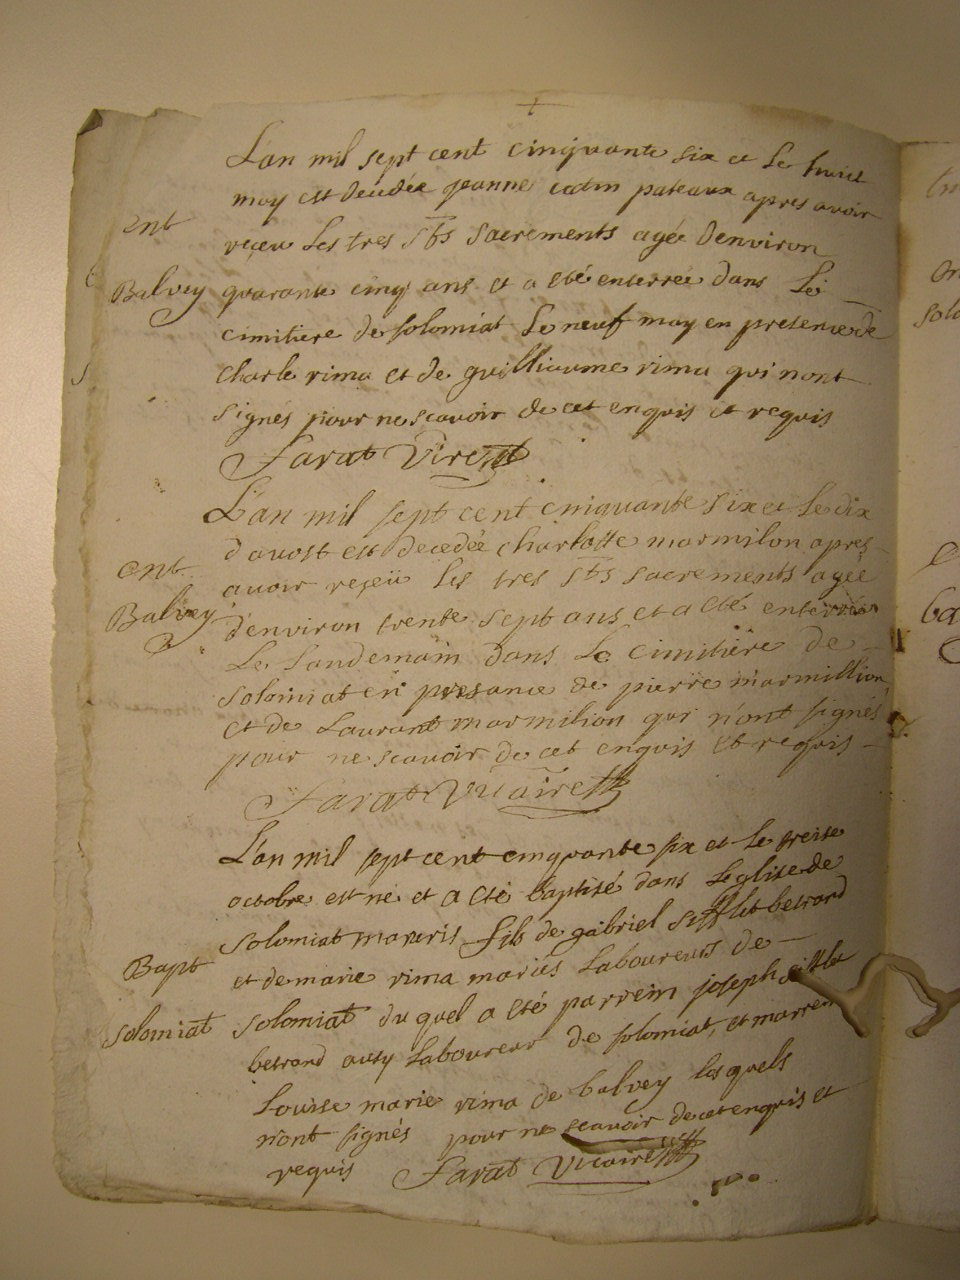 L'an mil sept cent cinquante six et le huict
may est decedée jeanne catin pateaux apres avoir
ent
reçeu les tres Sts Sacrements agée denviron
Balvey quarante cinq ans et a eté enterrée dans Le
cimitiere de solomiat Le neuf may en presence de
charle rima et de guilliaume rima qui nont
signés pour ne scavoir de cet enquis et requis
Farat Vire
L'an mil sept cent cinquante six et Le dix
d'avost est decedée charlotte marmilon apres
ent
avoir reçeü les tres Sts Sacrements agée
Balvey
d'environ trente sept ans et a eté enterrée
Le Landemain dans Le cimitière de
solomiat en presance de pierre marmillion
et de Laurant marmilion qui n'ont signés
pour ne scavoir de cet enquis et requis
Farat Vicaire
L'an mil sept cent cinquante six et Le treise
octobre est né et a eté baptisé dans Leglise de
solomiat fils de gabriel betrand
Bapt
et de marie rima mariés Laboureurs de
solomiat solomiat du quel a eté parrein joseph
betrand ausy Laboureur de solomiat, et marrein
Louise marie rima de balvey lesquels
n'ont signés pour ne scavoir de cet enquis et
requis Farat Vicaire